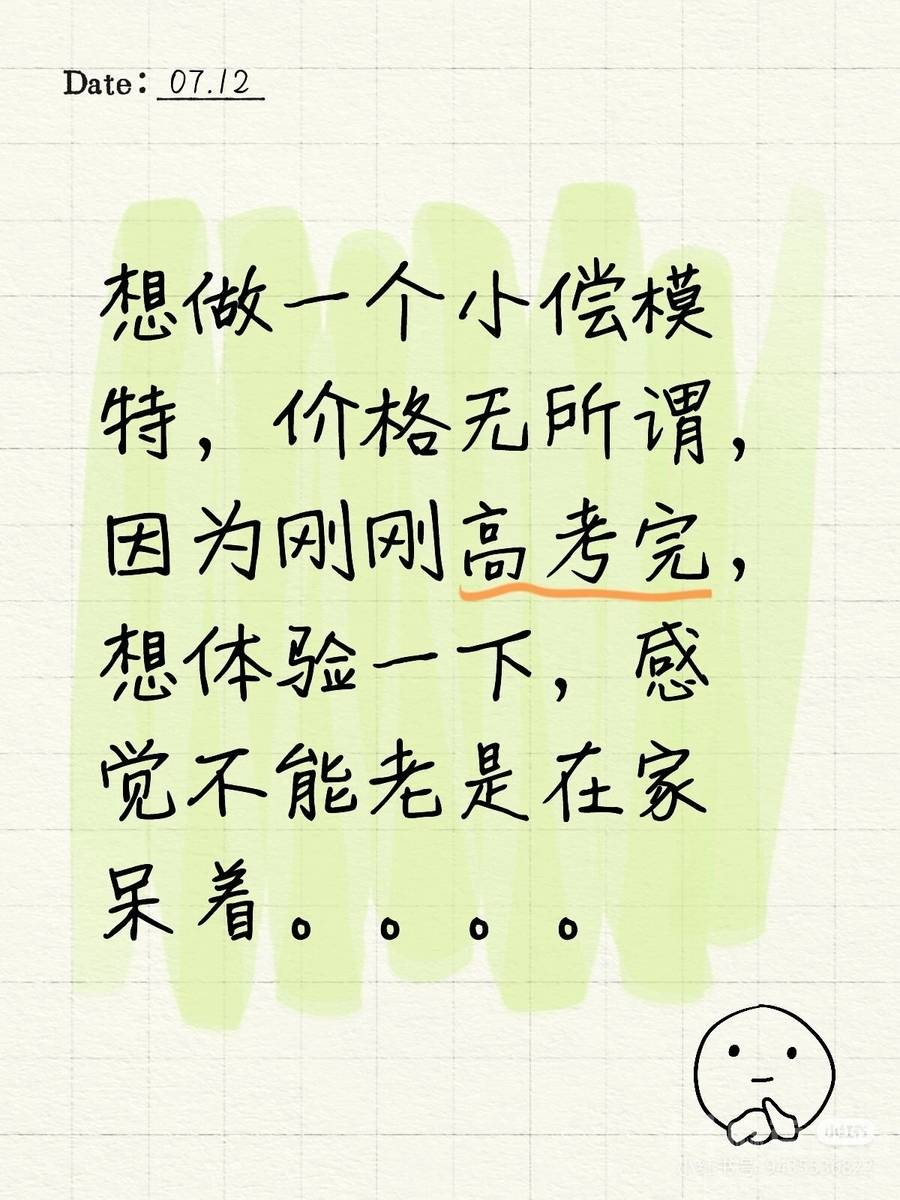 Date: 07.12
想做一个小偿模
特，价格无所谓，
因为刚刚高考完，
想体验一下，感
觉不能老是在家
呆着。。。。
小红书
小红书号: 9435536827